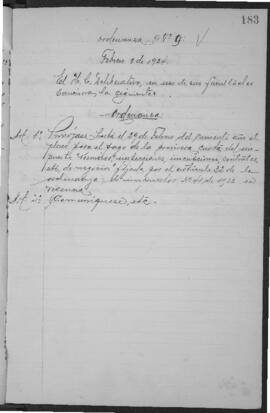 183
Ordenanza Nº 9
Febrero 2 de 1924
El H. C. Deliberativo, en uso de sus facultades
Sanciona, la siguiente
Ordenanza
Art. 1º Prorrógase hasta el 29 de Febrero del presente año el
plazo para el pago de la primera cuota del
"Remates" inspecciones,
de negocios fijada por el artículo 22 de la
Ordenanza de de 1922 en
vigencia
Art. 2º Comuníquese, etc.